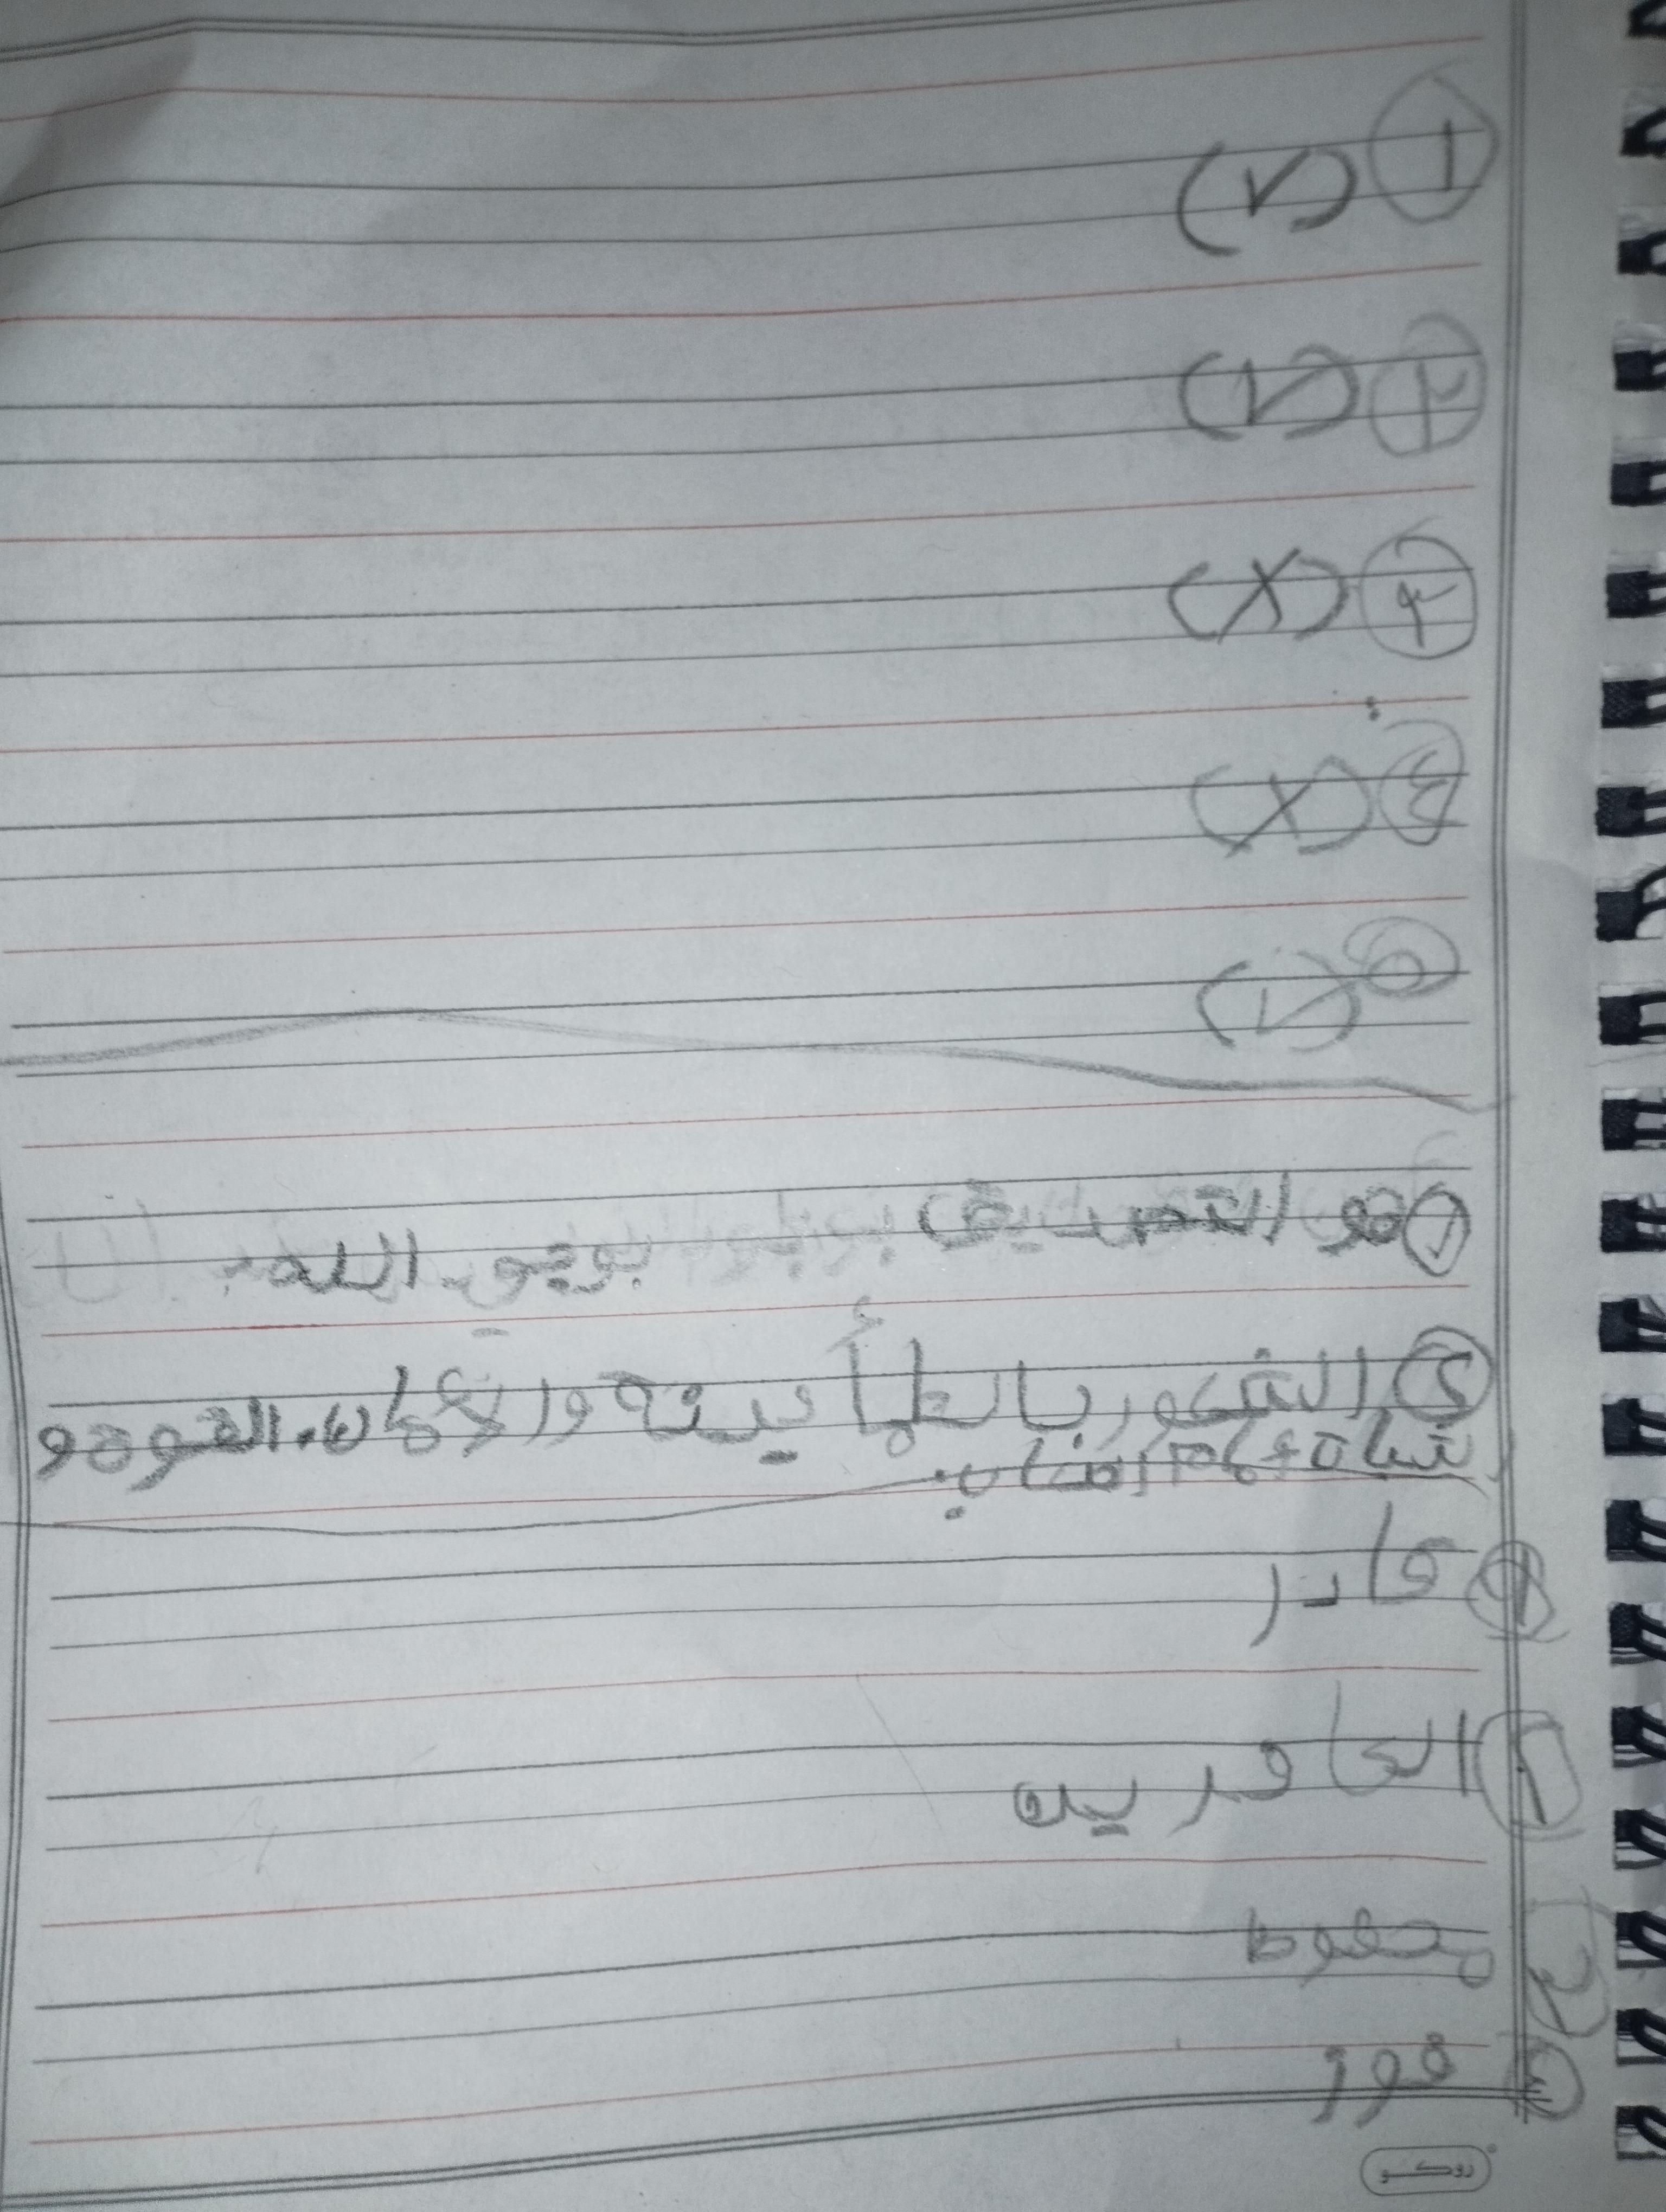 ١ (✓)
٢ (✓)
٣ (X)
٤ (X)
٥ (✓)
١ هو التصديق بوجود الله
٢ الشعور بالطمأنينة والأمان. القوة و
قادر
٢ الكافرين
٣ محفوظ
٤ فوز
روكو